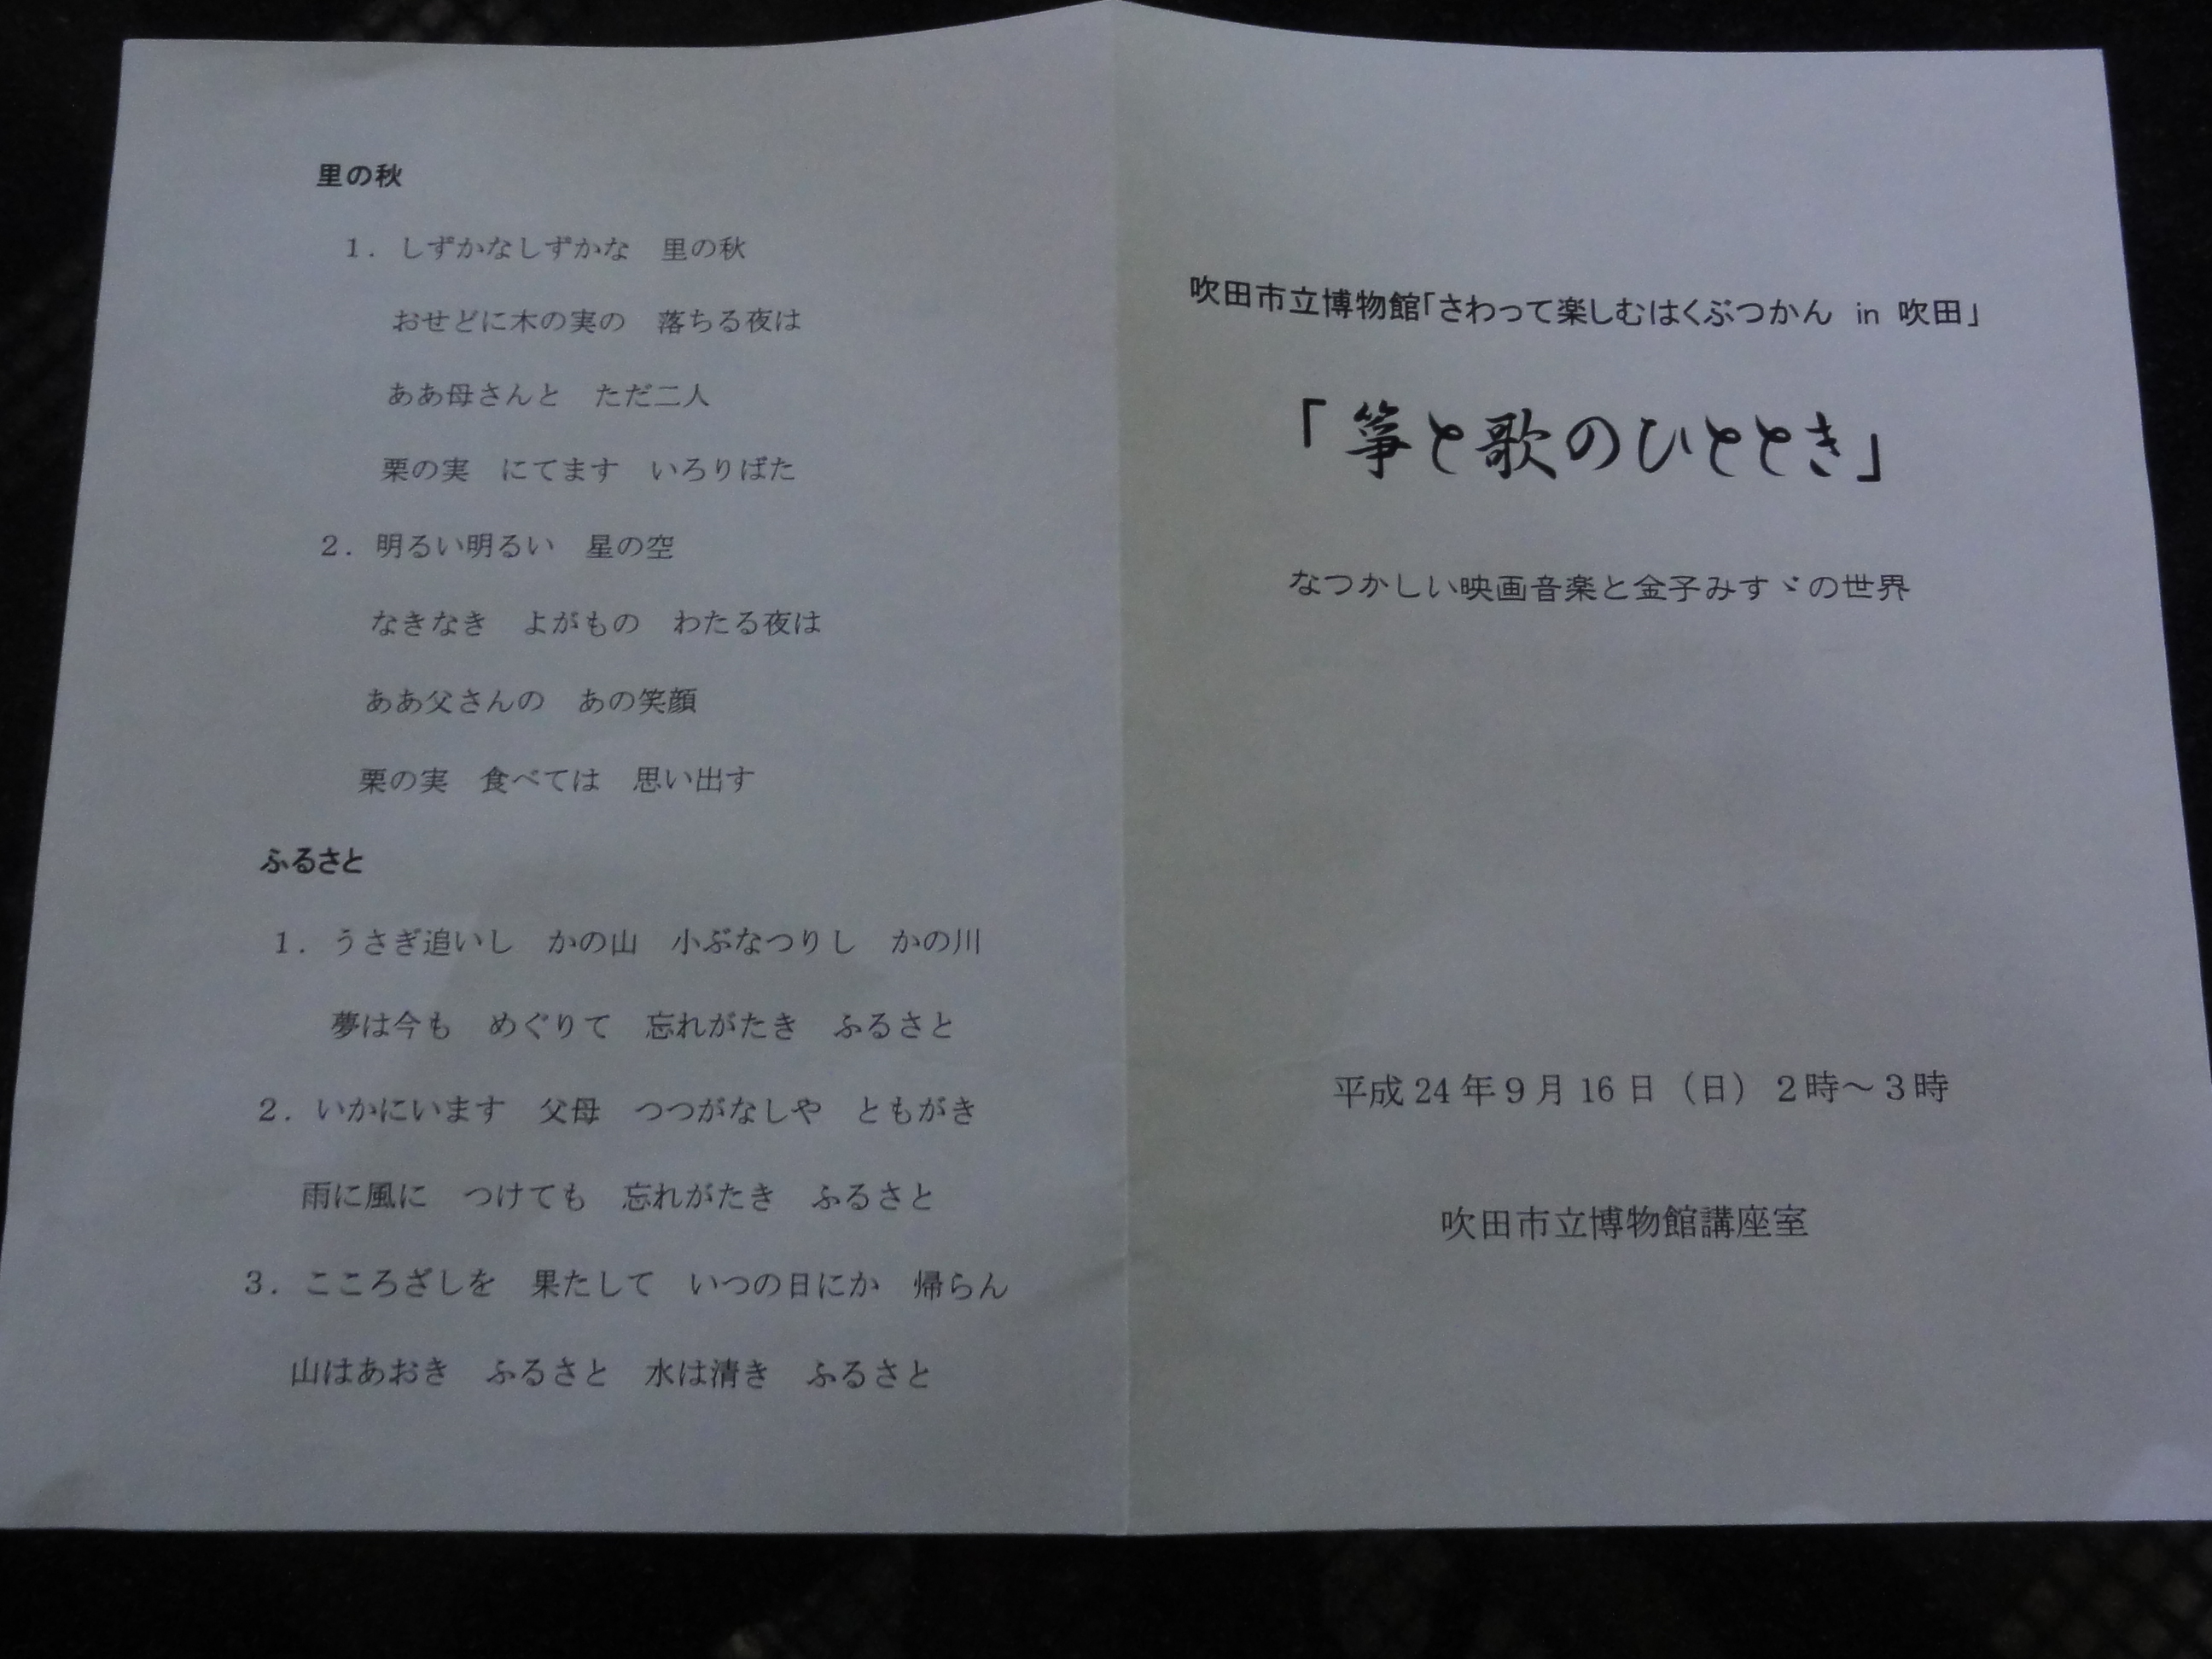 里の秋
1. しずかなしずかな　里の秋
おせどに木の実の　落ちる夜は
ああ母さんと　ただ二人
栗の実　にてます　いろりばた
2. 明るい明るい　星の空
なきなき　よがもの　わたる夜は
ああ父さんの　あの笑顔
栗の実　食べては　思い出す
ふるさと
1. うさぎ追いし　かの山　小ぶなつりし　かの川
夢は今も　めぐりて　忘れがたき　ふるさと
2. いかにいます　父母　つつがなしや　ともがき
雨に風に　つけても　忘れがたき　ふるさと
3. こころざしを　果たして　いつの日にか　帰らん
山はあおき　ふるさと　水は清き　ふるさと
吹田市立博物館「さわって楽しむはくぶつかん in 吹田」
「箏と歌のひととき」
なつかしい映画音楽と金子みすゞの世界
平成 24 年 9 月 16 日（日）2 時～3 時
吹田市立博物館講座室